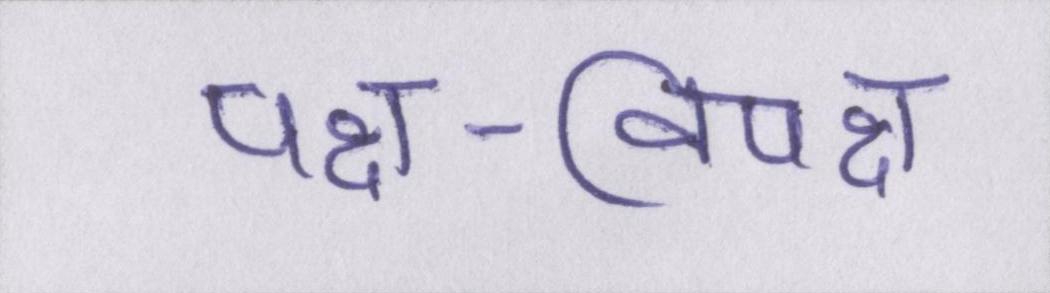 पक्ष-विपक्ष